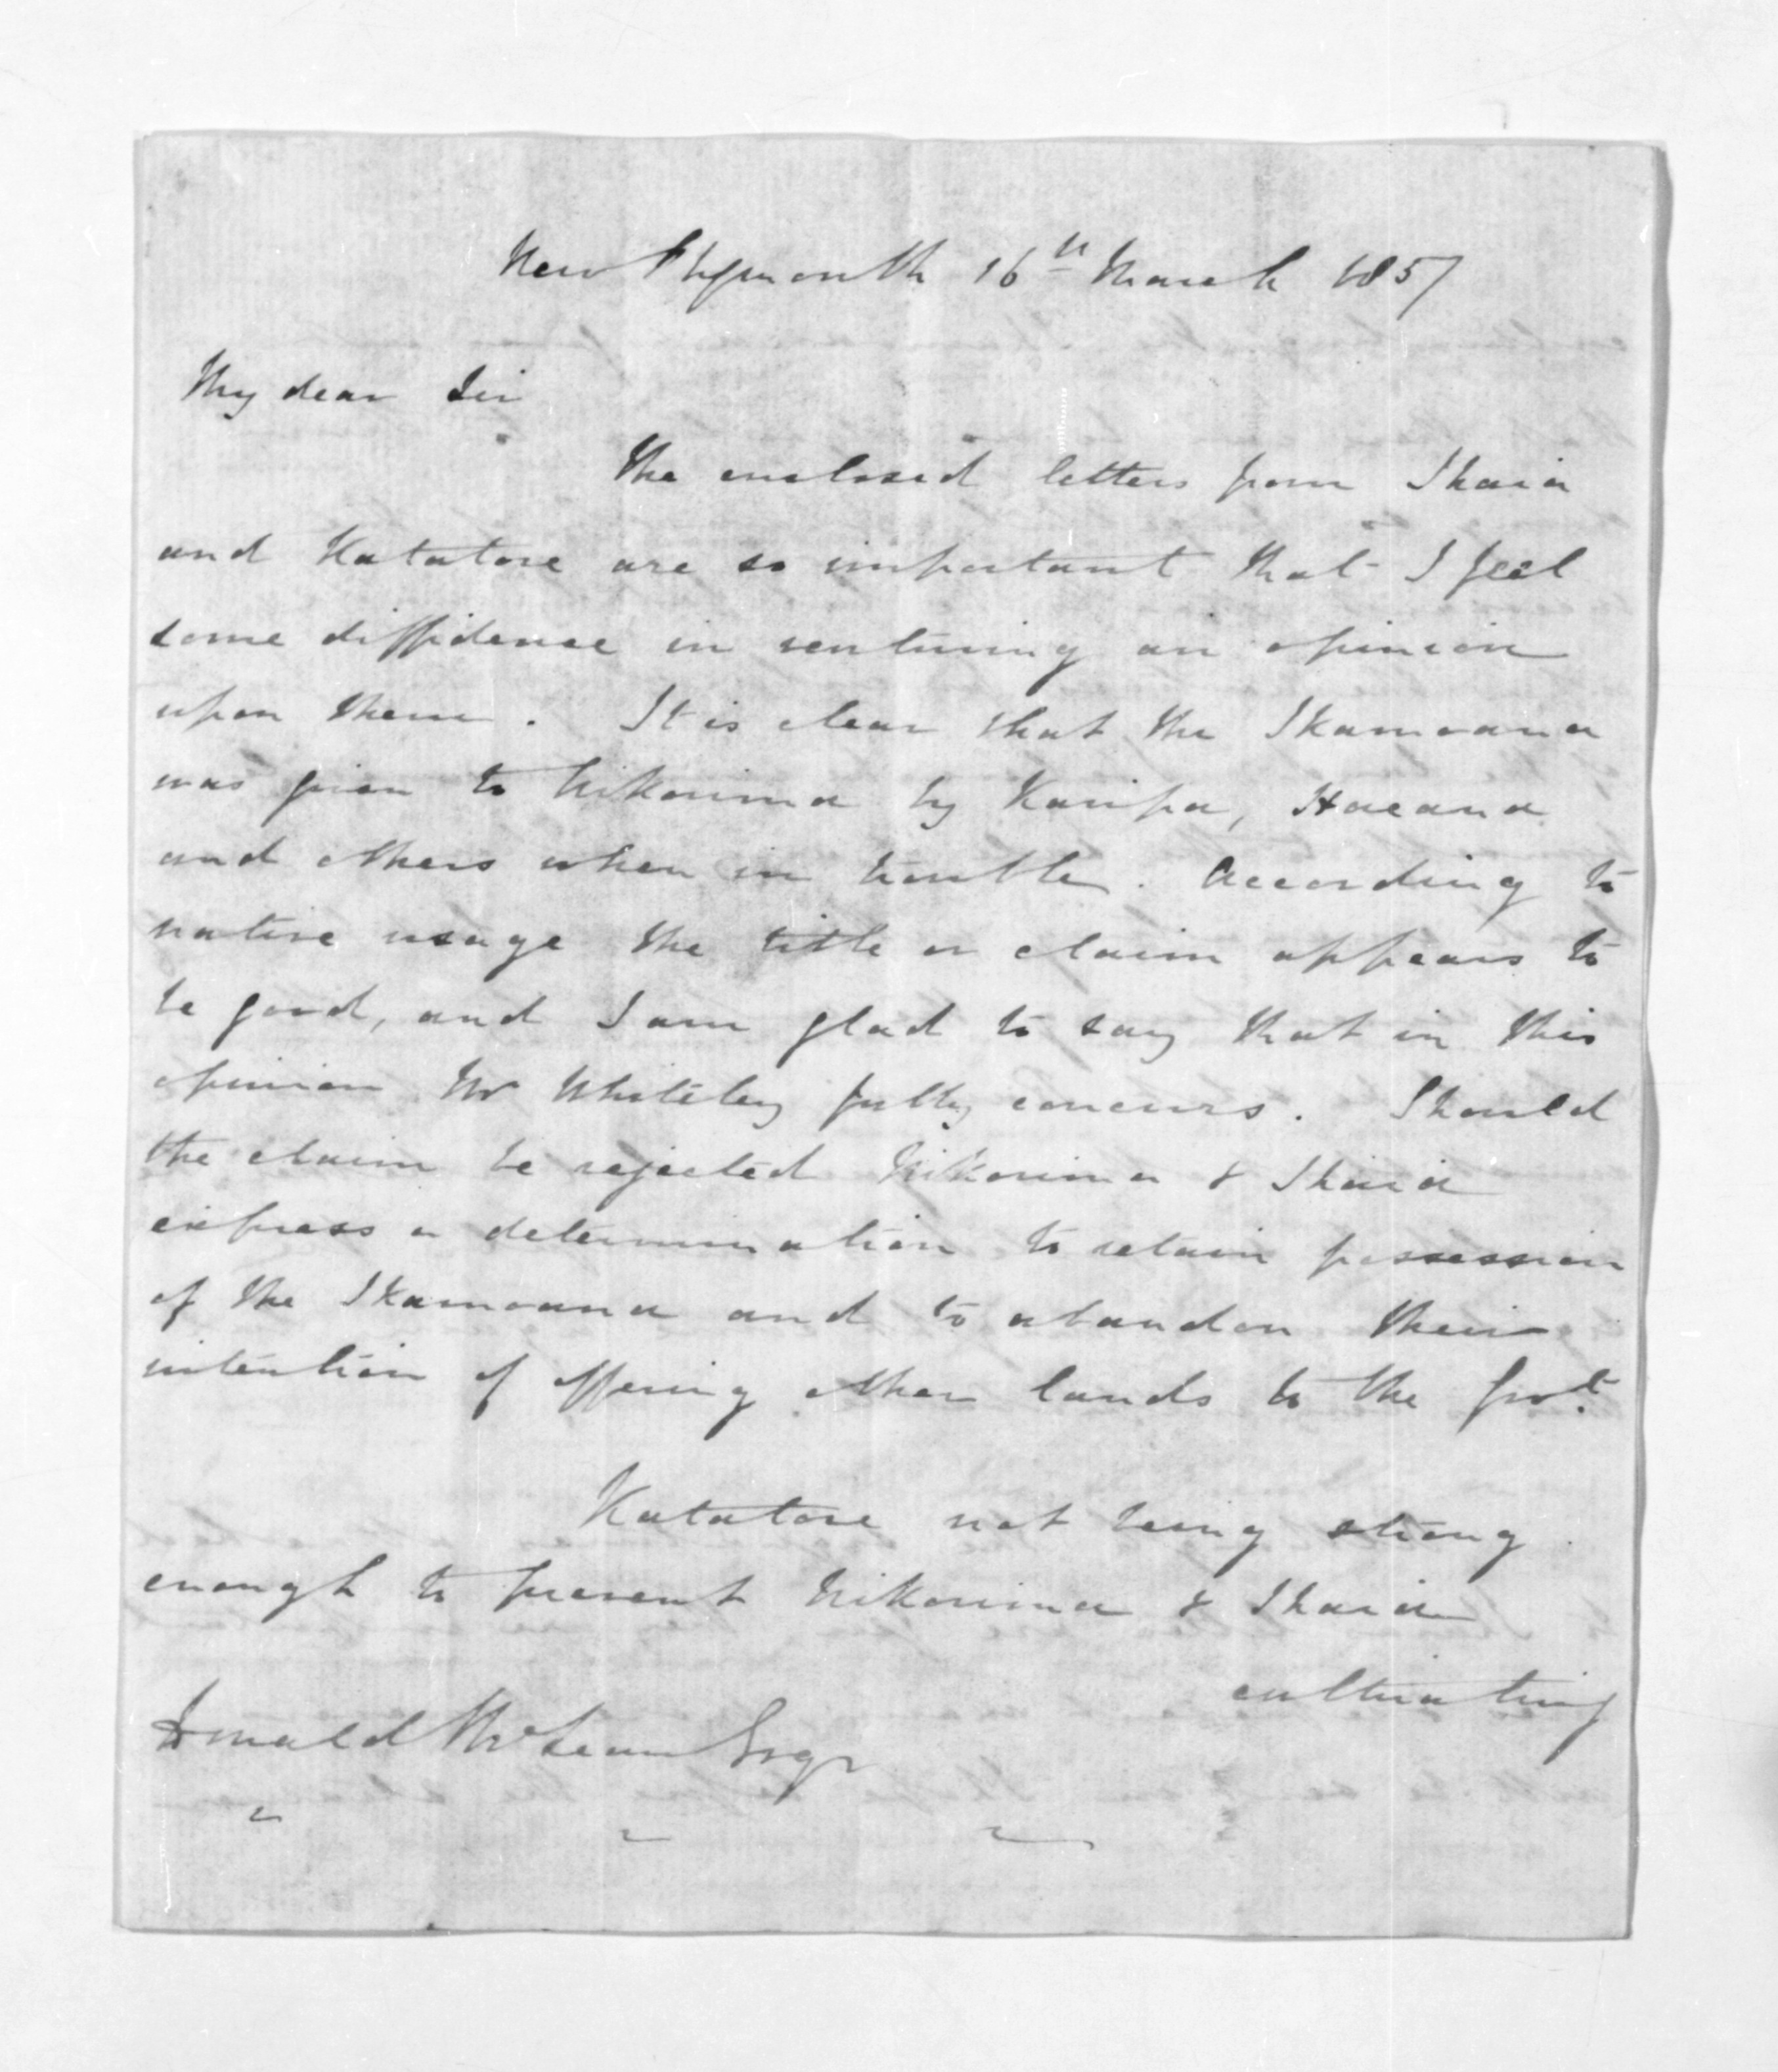 New Plymouth 16th March 1857
My dear Sir
The enclosed letters from Ihaia
and Katatore are so important that I feel
some diffidence in venturing an opinion
upon them. It is clear that the Ikamoana
was given to Nikorima by Karipa,
and others when in trouble. According to
native usage the title or claim appears to
be good, and I am glad to say that in this
opinion Mr Whiteley fully concurs. Should
the claim be rejected Nikorima & Ihaia
express a determination to retain possession
of the Ikamoana and to abandon their
intention of offering other lands to the Govt.
Katatore not being strong
enough to prevent Nikorima & Ihaia
cultivating
Donald McLean Esqr